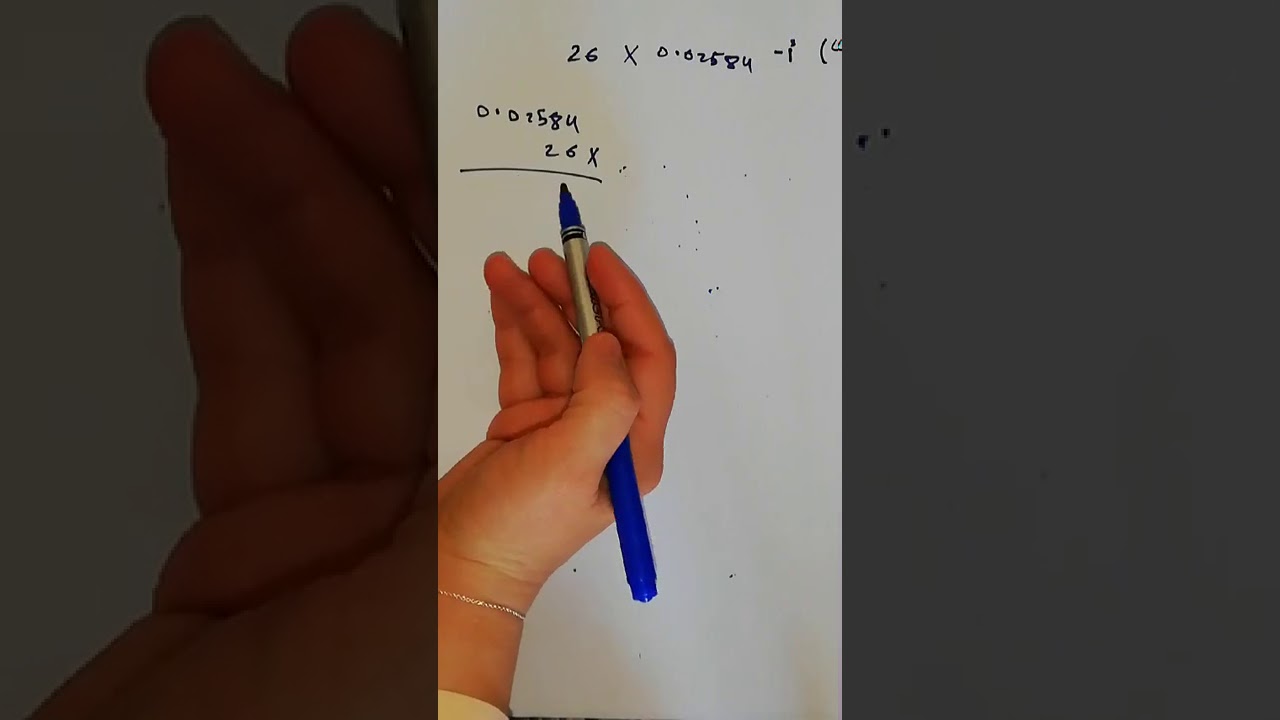 26 X 0.02584 -i (4
0.02584
26 X